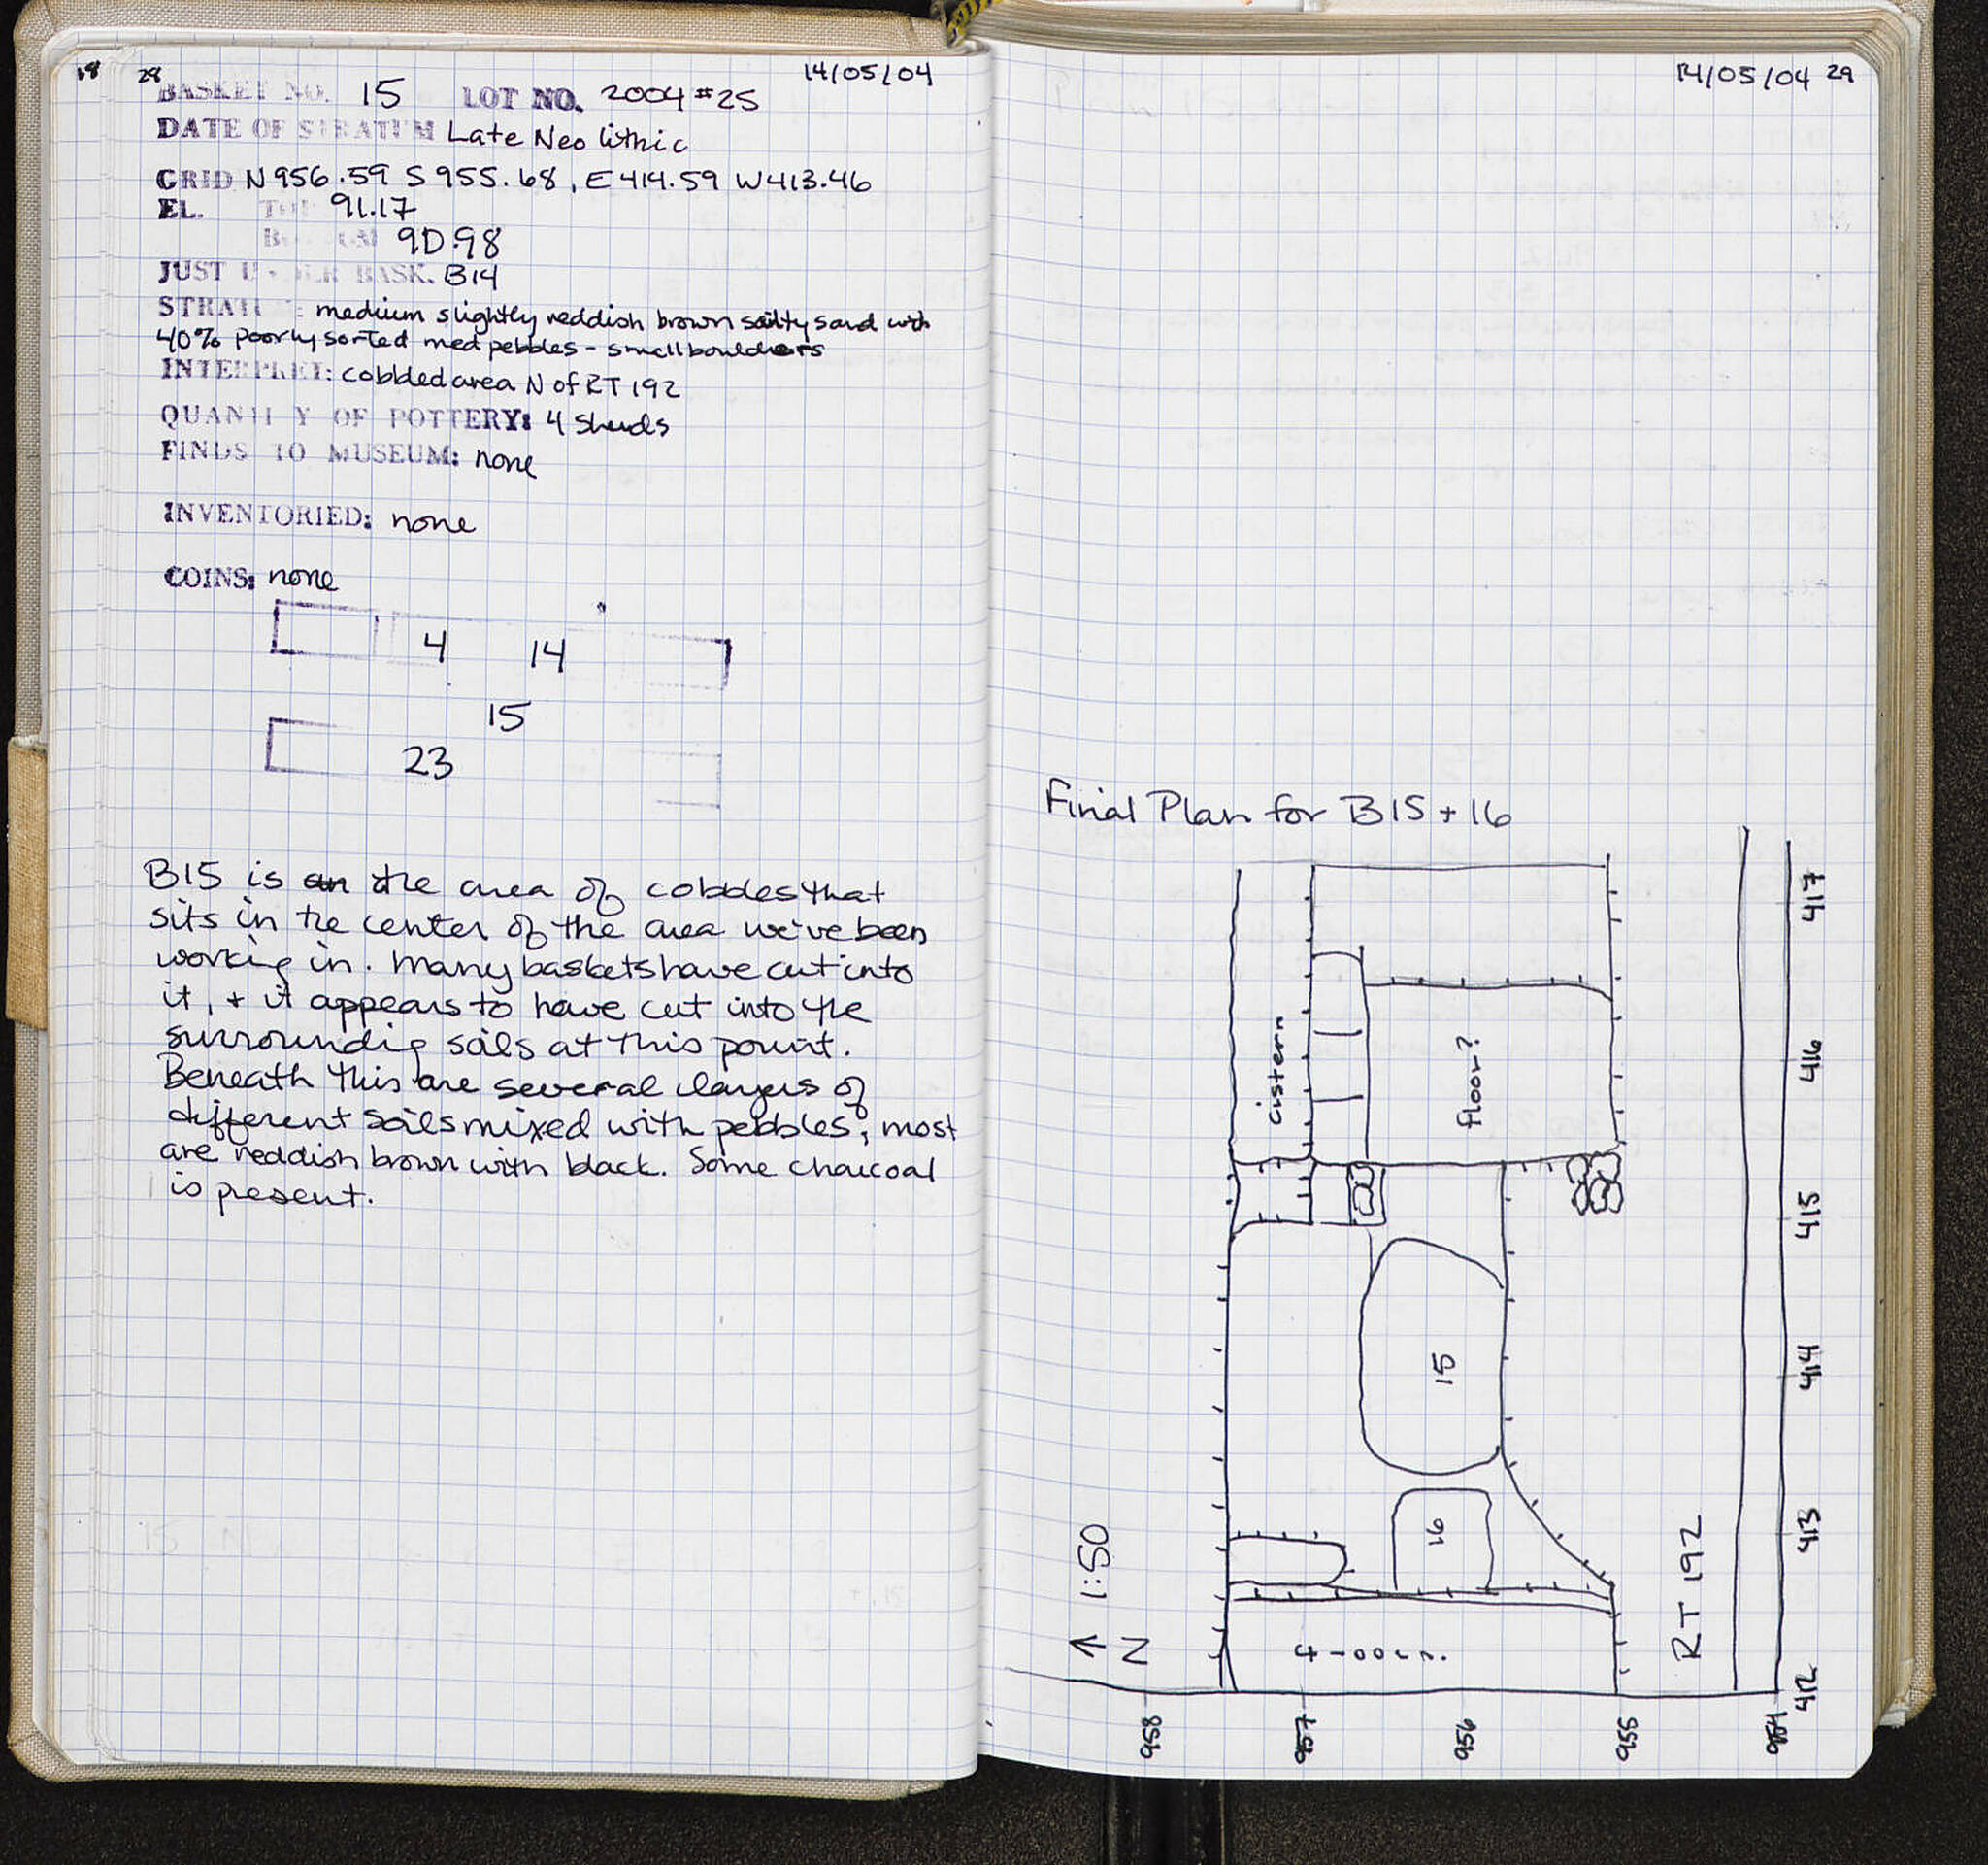 18 28 14/05/04
BASKET NO. 15 LOT NO. 2004 #25
DATE OF STRATUM Late Neolithic
GRID N956.59 S955.68, E414.59 W413.46
EL. TOP 91.17
BOTTOM 90.98
JUST UNDER BASK. B14
STRATUM: medium slightly reddish brown silty sand with
40% poorly sorted med pebbles - small boulders
INTERPRET: cobbled area N of RT 192
QUANTITY OF POTTERY: 4 sherds
FINDS TO MUSEUM: none
INVENTORIED: none
COINS: none
4 14
15
23
B15 is an the area of cobbles that
sits in the center of the area we've been
working in. Many baskets have cut into
it, + it appears to have cut into the
surrounding soils at this point.
Beneath this are several layers of
different soils mixed with pebbles, most
are reddish brown with black. Some charcoal
is present.
14/05/04 29
Final Plan for B15 + 16
cistern
floor?
15
16
floor?
1:50
N
RT 192
417
416
415
414
413
412
958
957
956
955
954